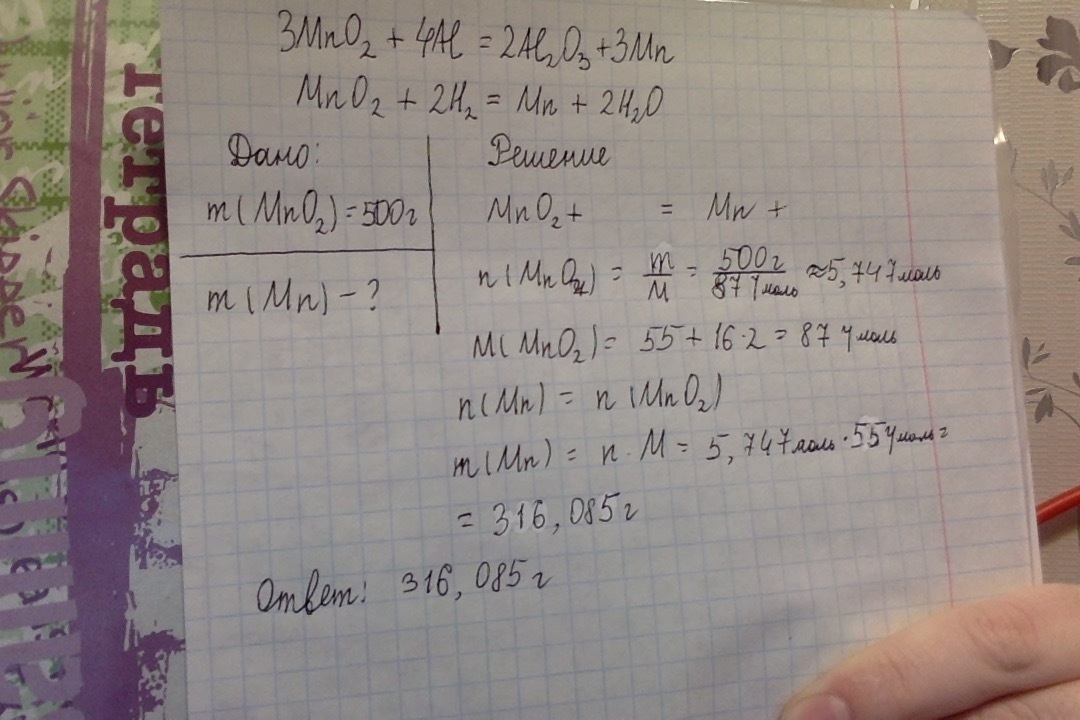 3MnO₂ + 4Al = 2Al₂O₃ + 3Mn
MnO₂ + 2H₂ = Mn + 2H₂O
Дано:
m(MnO₂) = 500г
m(Mn) - ?
Решение
MnO₂ + = Mn +
n(MnO₂) = m/M = 500г/87 г/моль ≈ 5,747моль
M(MnO₂) = 55 + 16·2 = 87 г/моль
n(Mn) = n(MnO₂)
m(Mn) = n · M = 5,747моль · 55 г/моль =
= 316,085г
Ответ: 316,085г
тетрадь